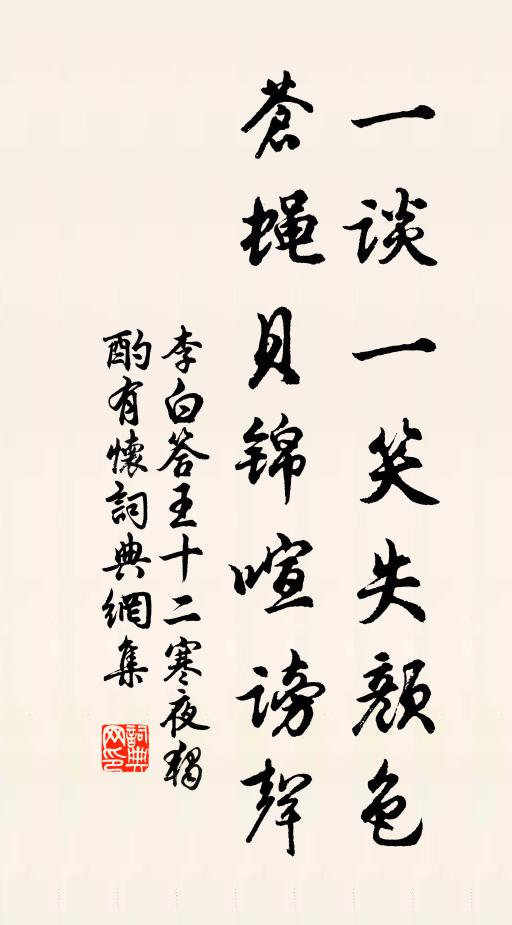 一谈一笑失颜色
苍蝇贝锦喧谤聲
李白答王十二寒夜獨
酌有懷詞典網集
詞典
网印